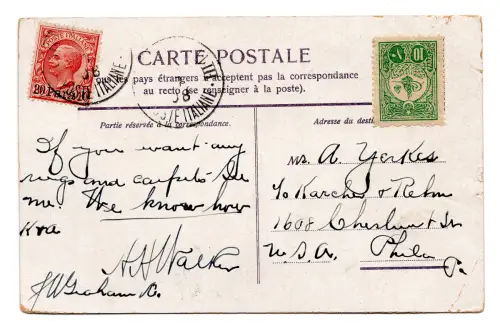 CARTE POSTALE
les pays étrangers n'acceptent pas la correspondance
au recto (se renseigner à la poste).
Partie réservée à la correspondance.
Adresse du desti
POSTE ITALIANE
20 Para 20
08
POSTE ITALIANE
10
If you want any
rugs and carpets see
me. We know how
A. H. Walker
J W Graham
Mr. A. Yerkes
c/o Karcher & Rehm
1608 Chestnut St
U.S.A. Phila
Pa.